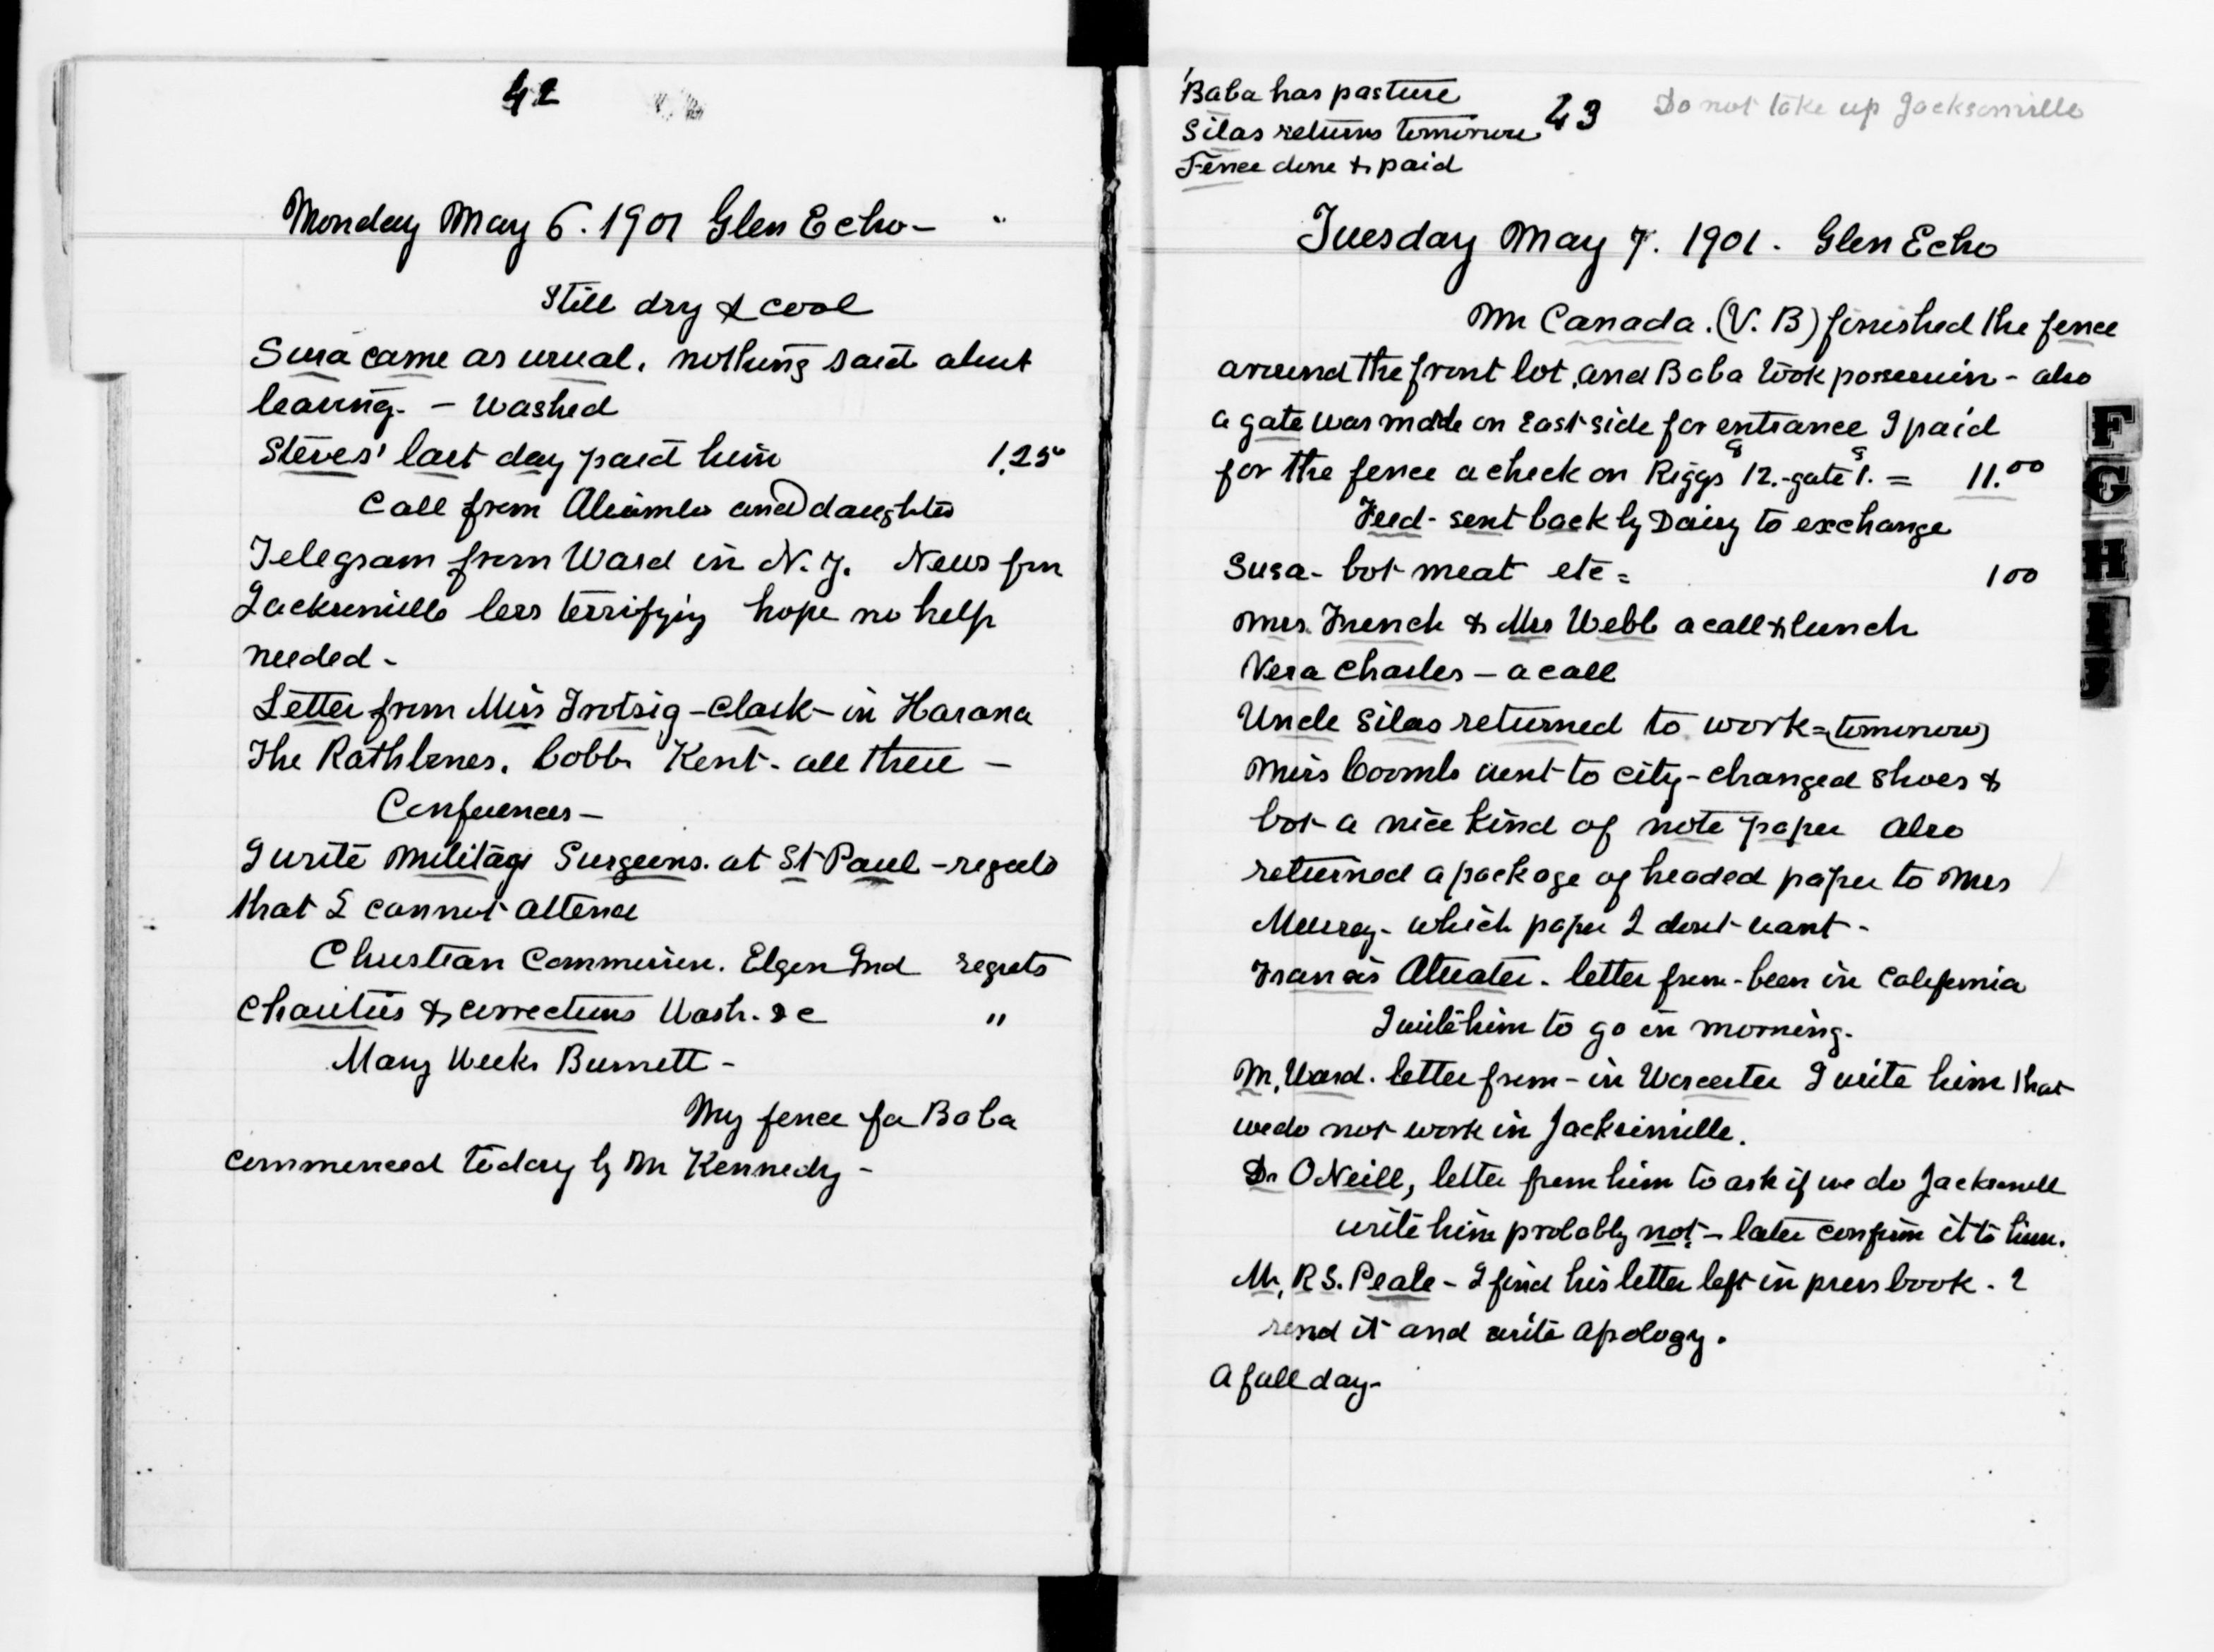 42
Monday May 6. 1901 Glen Echo -
Still dry & cool
Susa came as usual. nothing said about
leaving. - Washed
Steves' last day paid him 1.25
Call from and daughter
Telegram from Ward in N. Y. News from
Jacksonville less terrifying hope no help
needed -
Letter from Miss Trotsig - Clark - in Havana
The Rathbones. Cobbs Kent. all there -
Conferences -
I write Military Surgeons. at St Paul - regrets
that I cannot attend
Christian Commission. Elgin Ind regrets
Charities & corrections Wash. DC "
Mary Weeks Burnett -
My fence for Baba
commenced today by Mr Kennedy -
Baba has pasture
Silas returns tomorrow
Fence done & paid
43
Do not take up Jacksonville
Tuesday May 7. 1901. Glen Echo
Mr Canada. (V. B) finished the fence
around the front lot, and Baba took possession - also
a gate was made on East side for entrance I paid
for the fence a check on Riggs 12.-gate 1. = 11.00
Feed - sent back by Dairy to exchange
Susa - bot meat etc = 1 00
Mrs. French & Mrs Webb a call & lunch
Vera Charles - a call
Uncle Silas returned to work = (tomorrow)
Miss Coombs went to city - changed shoes &
bot a nice kind of note paper also
returned a package of headed paper to Mrs
Mussey - which paper I dont want -
Francis Atwater. letter from - been in California
I write him to go in morning.
M. Ward. letter from - in Worcester I write him that
we do not work in Jacksonville.
Dr ONeill, letter from him to ask if we do Jacksonville
write him probably not - later confirm it to him.
Mr. R S. Peale - I find his letter left in press book. I
send it and write apology.
A full day -
F
G
H
I
J